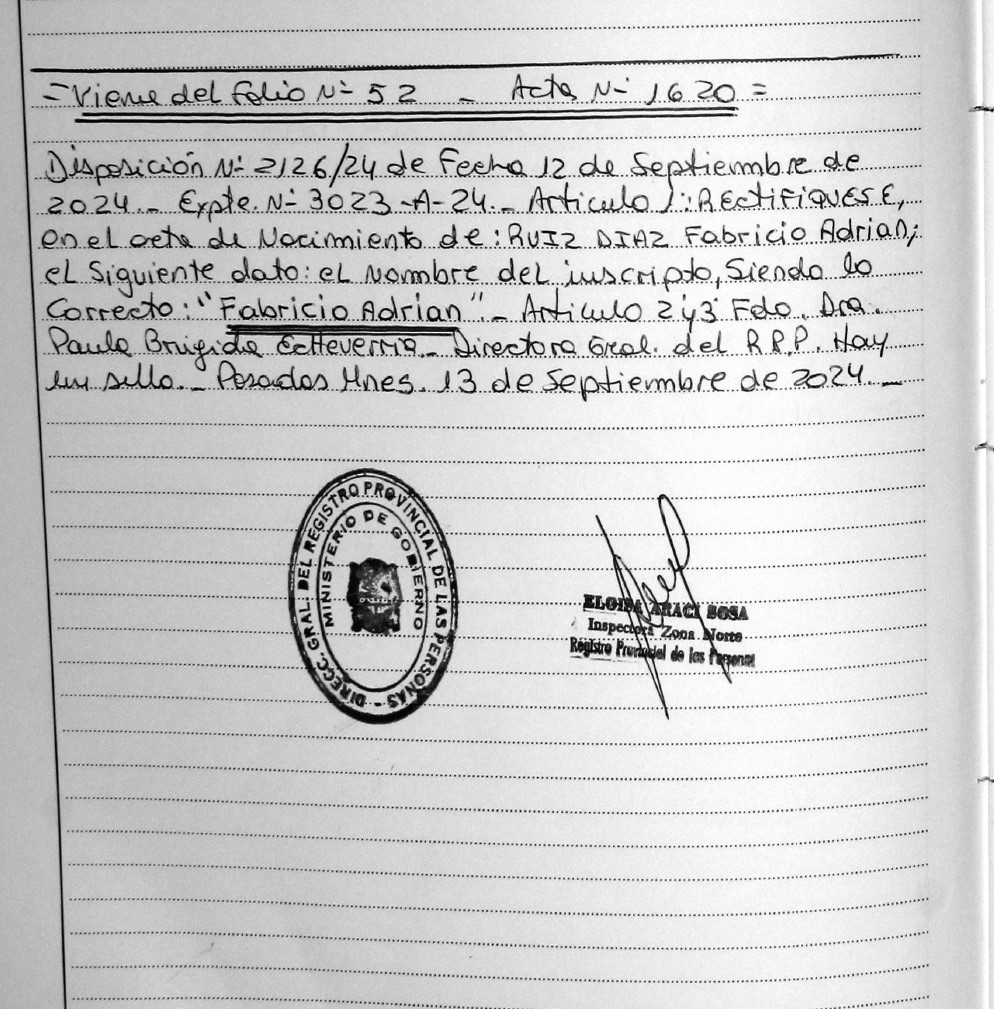 = Viene del folio Nº 52 - Acta Nº 1620 =
Disposición Nº 2126/24 de Fecha 12 de Septiembre de
2024.- Expte. Nº 3023-A-24.- Articulo 1: RECTIFIQUESE,
en el acta de Nacimiento de: RUIZ DIAZ Fabricio Adrian;
el siguiente dato: el Nombre del inscripto, Siendo lo
Correcto: "Fabricio Adrian".- Articulo 2 y 3 Fdo. Dra.
Paula Brigida Echeverria.- Directora Gral. del R.P.P. Hay
un sello.- Posadas Mnes. 13 de Septiembre de 2024.-
DIRECC. GRAL. DEL REGISTRO PROVINCIAL DE LAS PERSONAS -
MINISTERIO DE GOBIERNO
ELOISA ARACI SOSA
Inspectora Zona Norte
Registro Provincial de las Personas